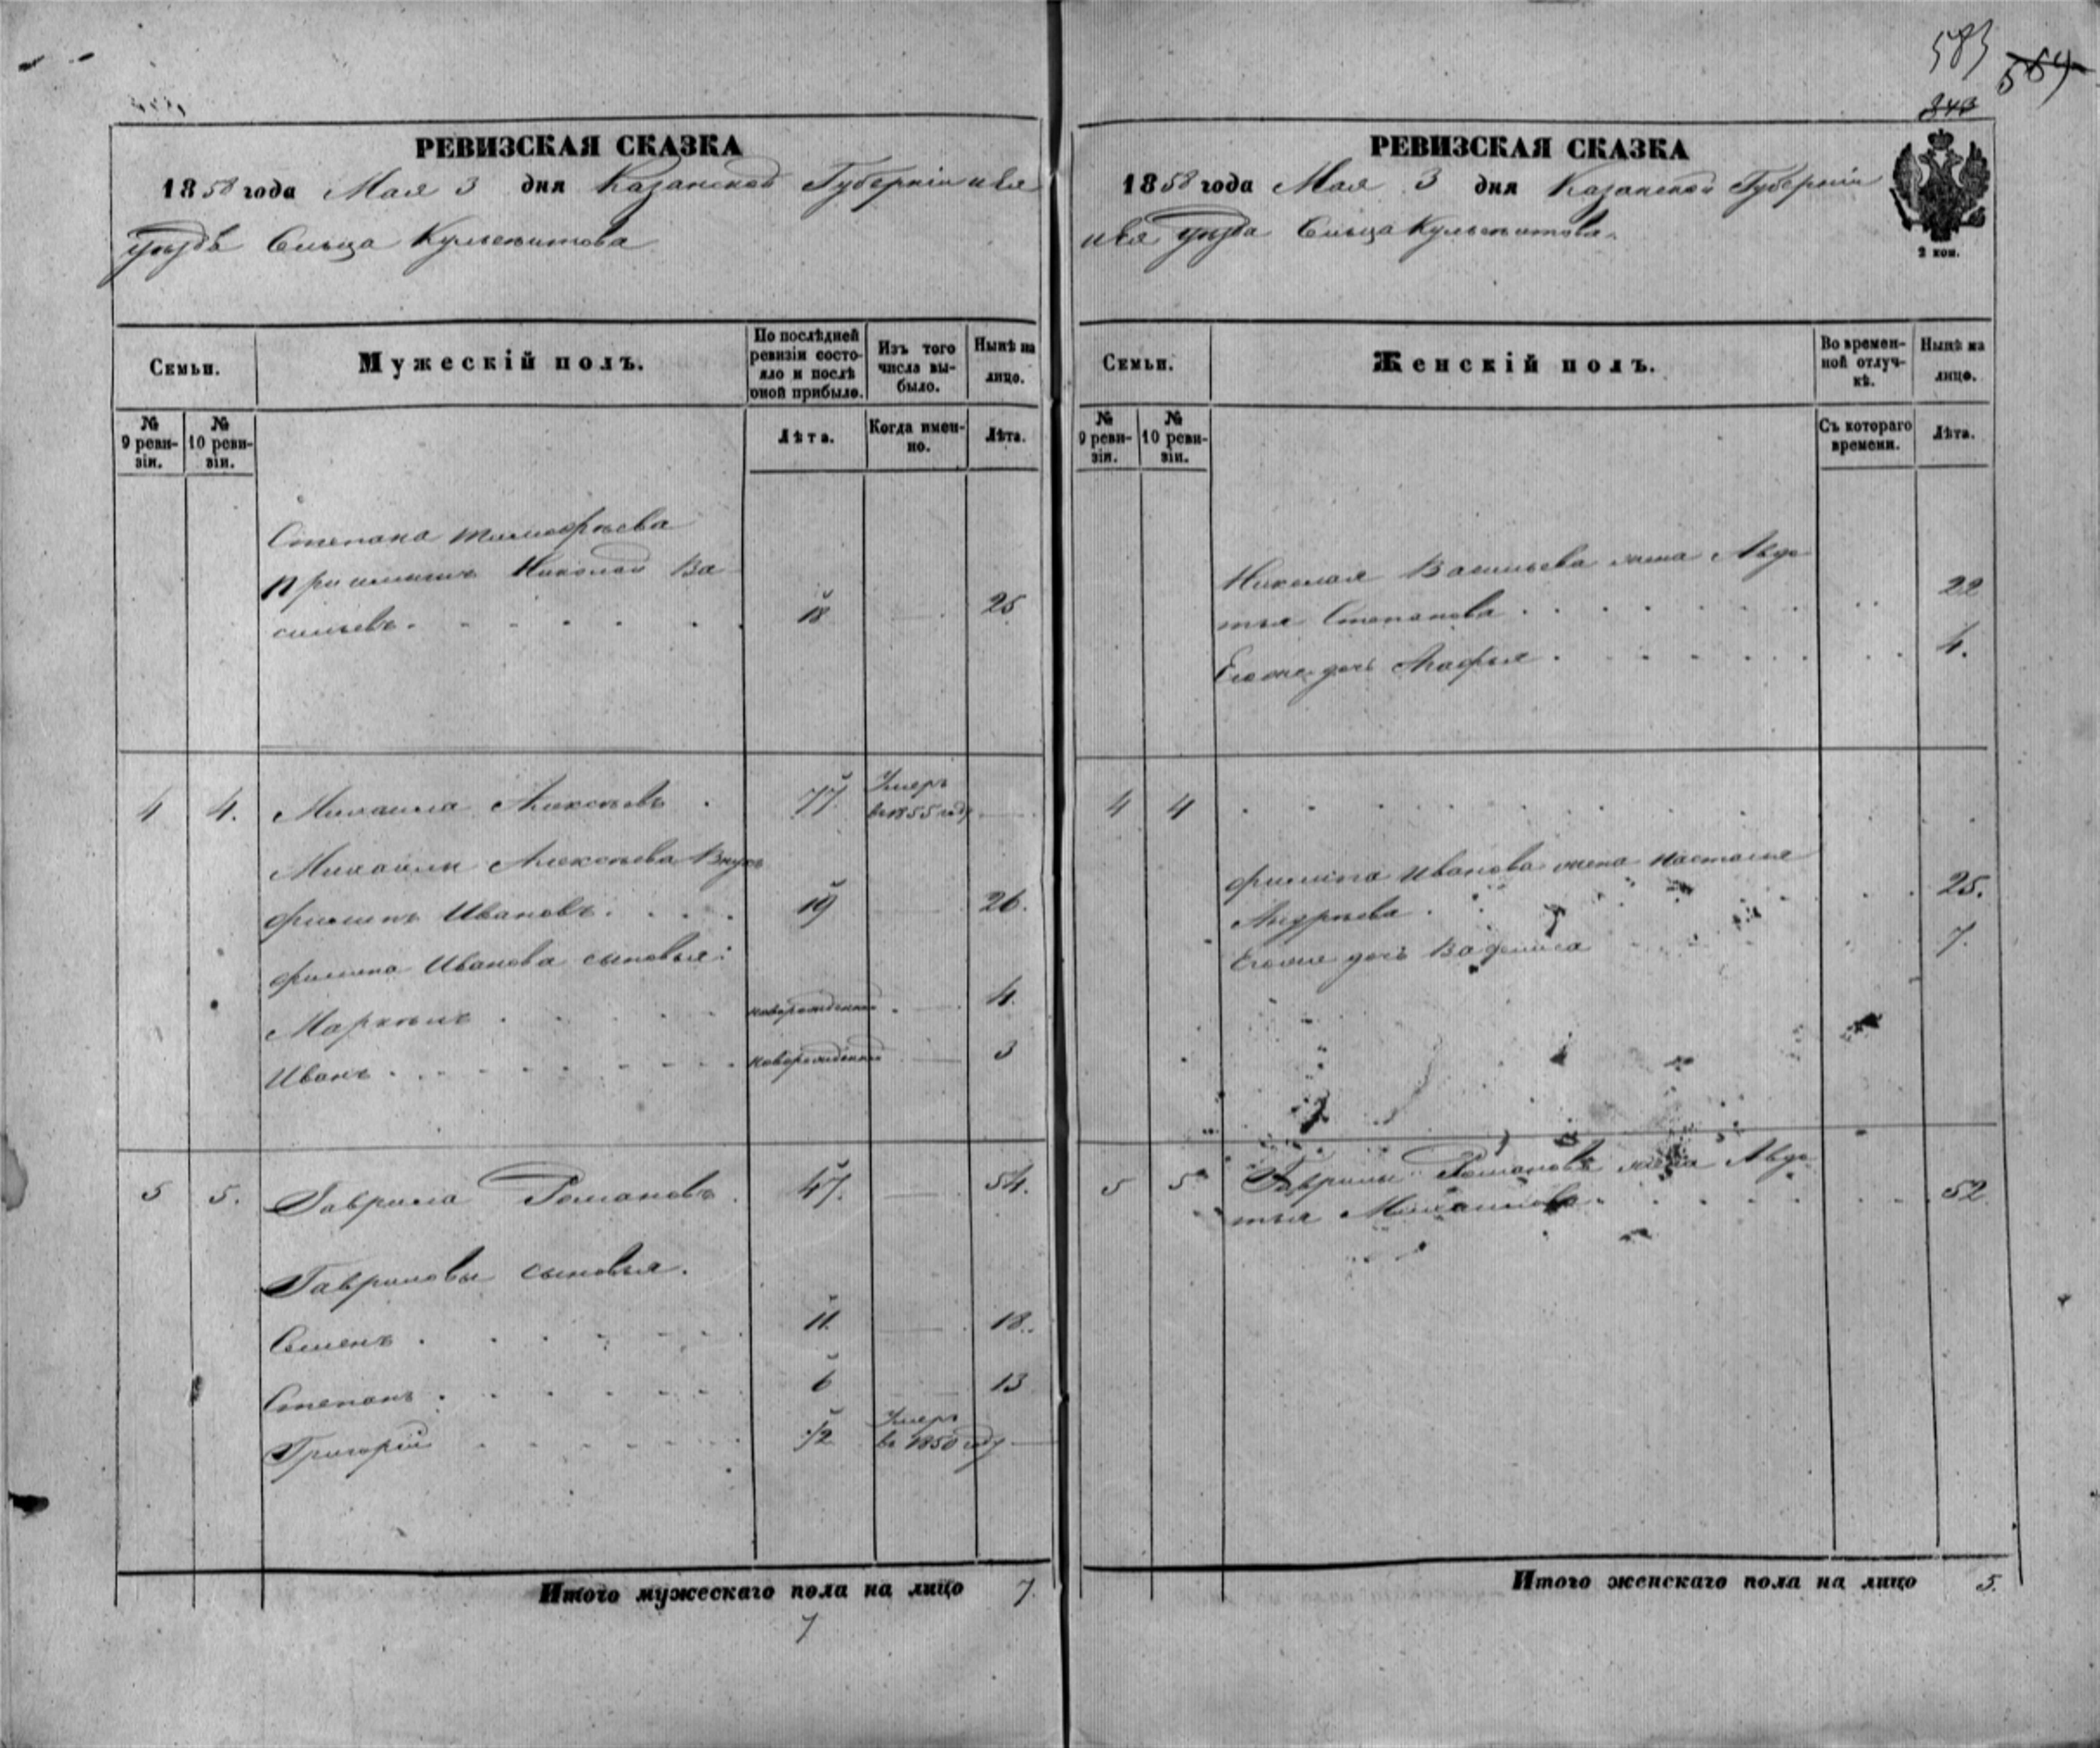 583 564
843
РЕВИЗСКАЯ СКАЗКА
1858 года Мая 3 дня Казанской Губерніи
уезда Сельца
Семьи.
Мужескій полъ.
По послѣдней ревизіи состояло и послѣ оной прибыло.
Изъ того числа выбыло.
Нынѣ на лицо.
№ 9 ревизіи.
№ 10 ревизіи.
Лѣта.
Когда именно.
Лѣта.
Степана Тимофѣева
Пріимышъ Николай Ва
сильевъ. 18 25
4 4. Михаила Алексѣевъ . 77. Умеръ
въ 1855 году
Михаилы Алексѣева Внукъ
Филипъ Ивановъ. 19 26.
Филипа Иванова сыновья:
новорожденный 4.
Иванъ. новорожденный 3
5 5. Гаврила Романовъ. 47. 54.
Гавриловы сыновья.
Семенъ . 11. 18.
Степанъ. 6 13
Григорій 1/2 Умеръ
въ 1850 году
Итого мужескаго пола на лицо 7.
7
РЕВИЗСКАЯ СКАЗКА
1858 года Мая 3 дня Казанской Губерніи
уезда Сельца
2 коп.
Семьи.
Женскій полъ.
Во временной отлучкѣ.
Нынѣ на лицо.
№ 9 ревизіи.
№ 10 ревизіи.
Съ котораго времени.
Лѣта.
Николая Васильева жена Авдо
тья Степанова. 22
Его же дочь Агафья. 4.
4 4
Филипа Иванова жена Настасья
Андреева. 25.
Его же дочь 7.
5 5 Гаврилы Романова жена Авдо
тья Михайлова. 52
Итого женскаго пола на лицо 5.